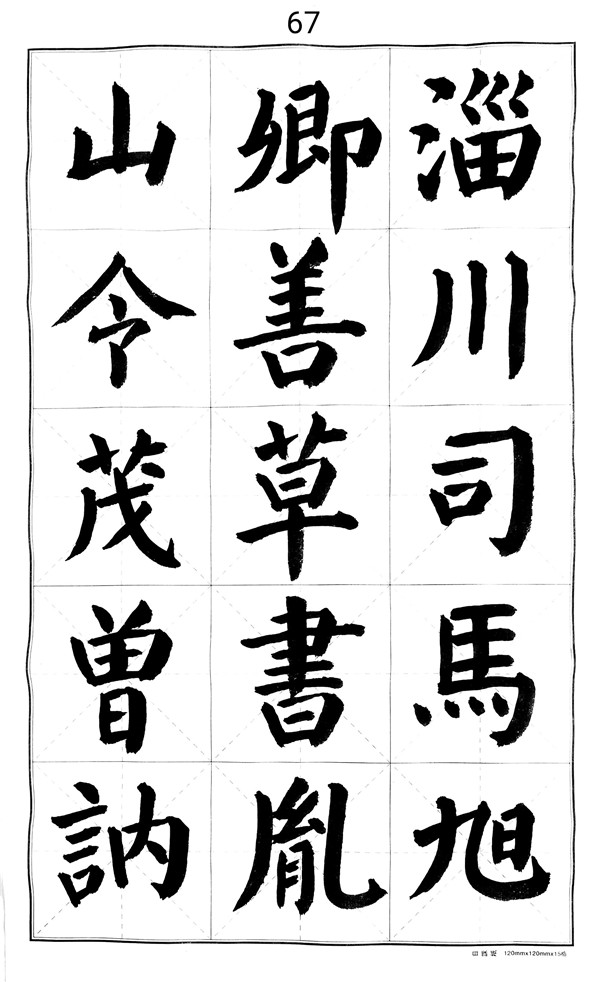 67
淄川司馬旭
卿善草書胤
山令茂曽訥
120mmx120mmx15格